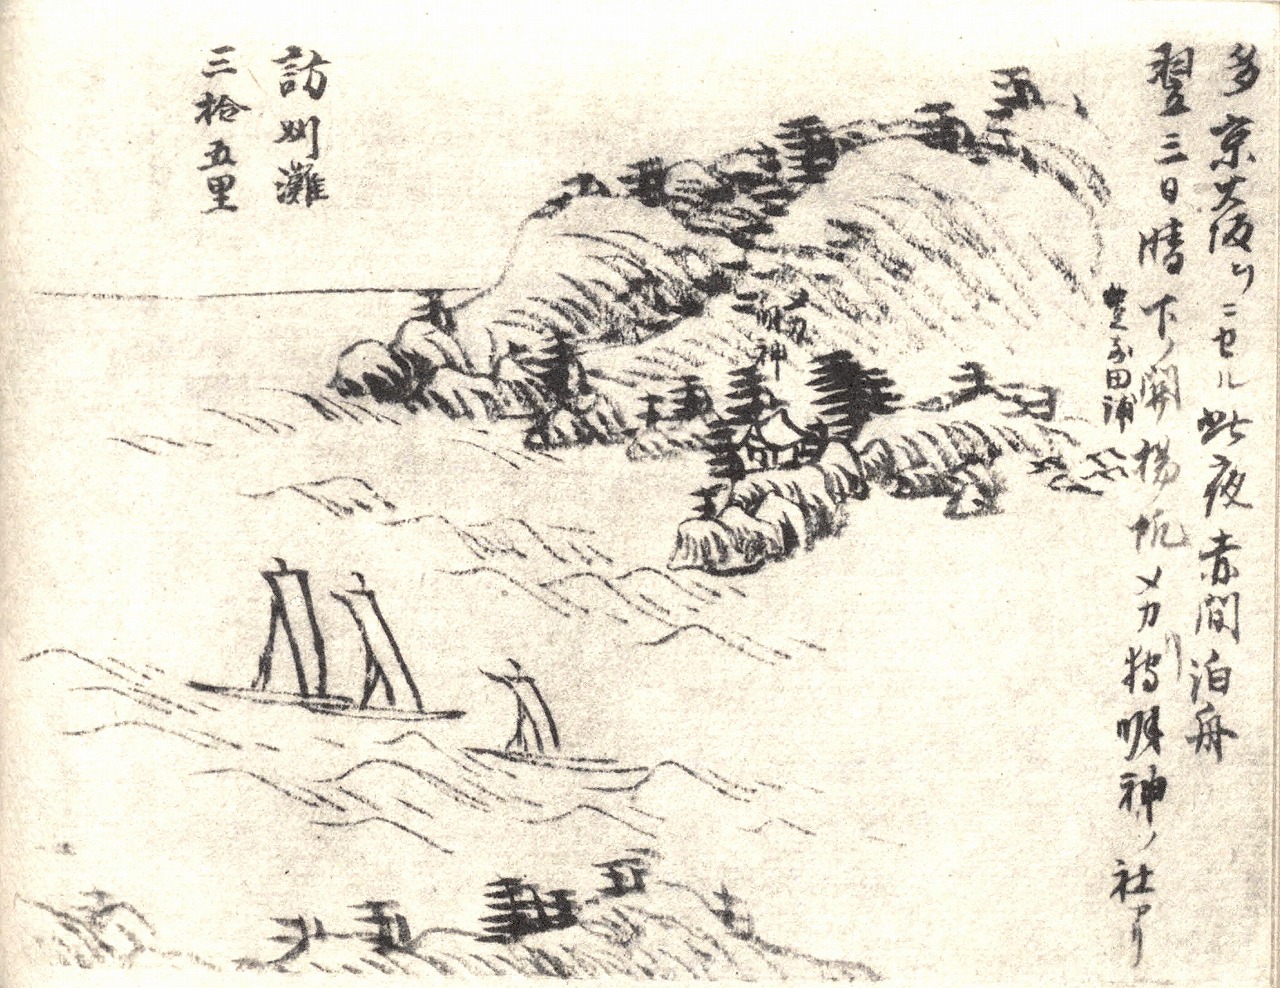 多京大阪ヨリニセル此夜赤間泊舟
翌三日晴下ノ関揚帆メカリ狩明神ノ社アリ
豊前田浦
明神
訪刈灘
三拾五里